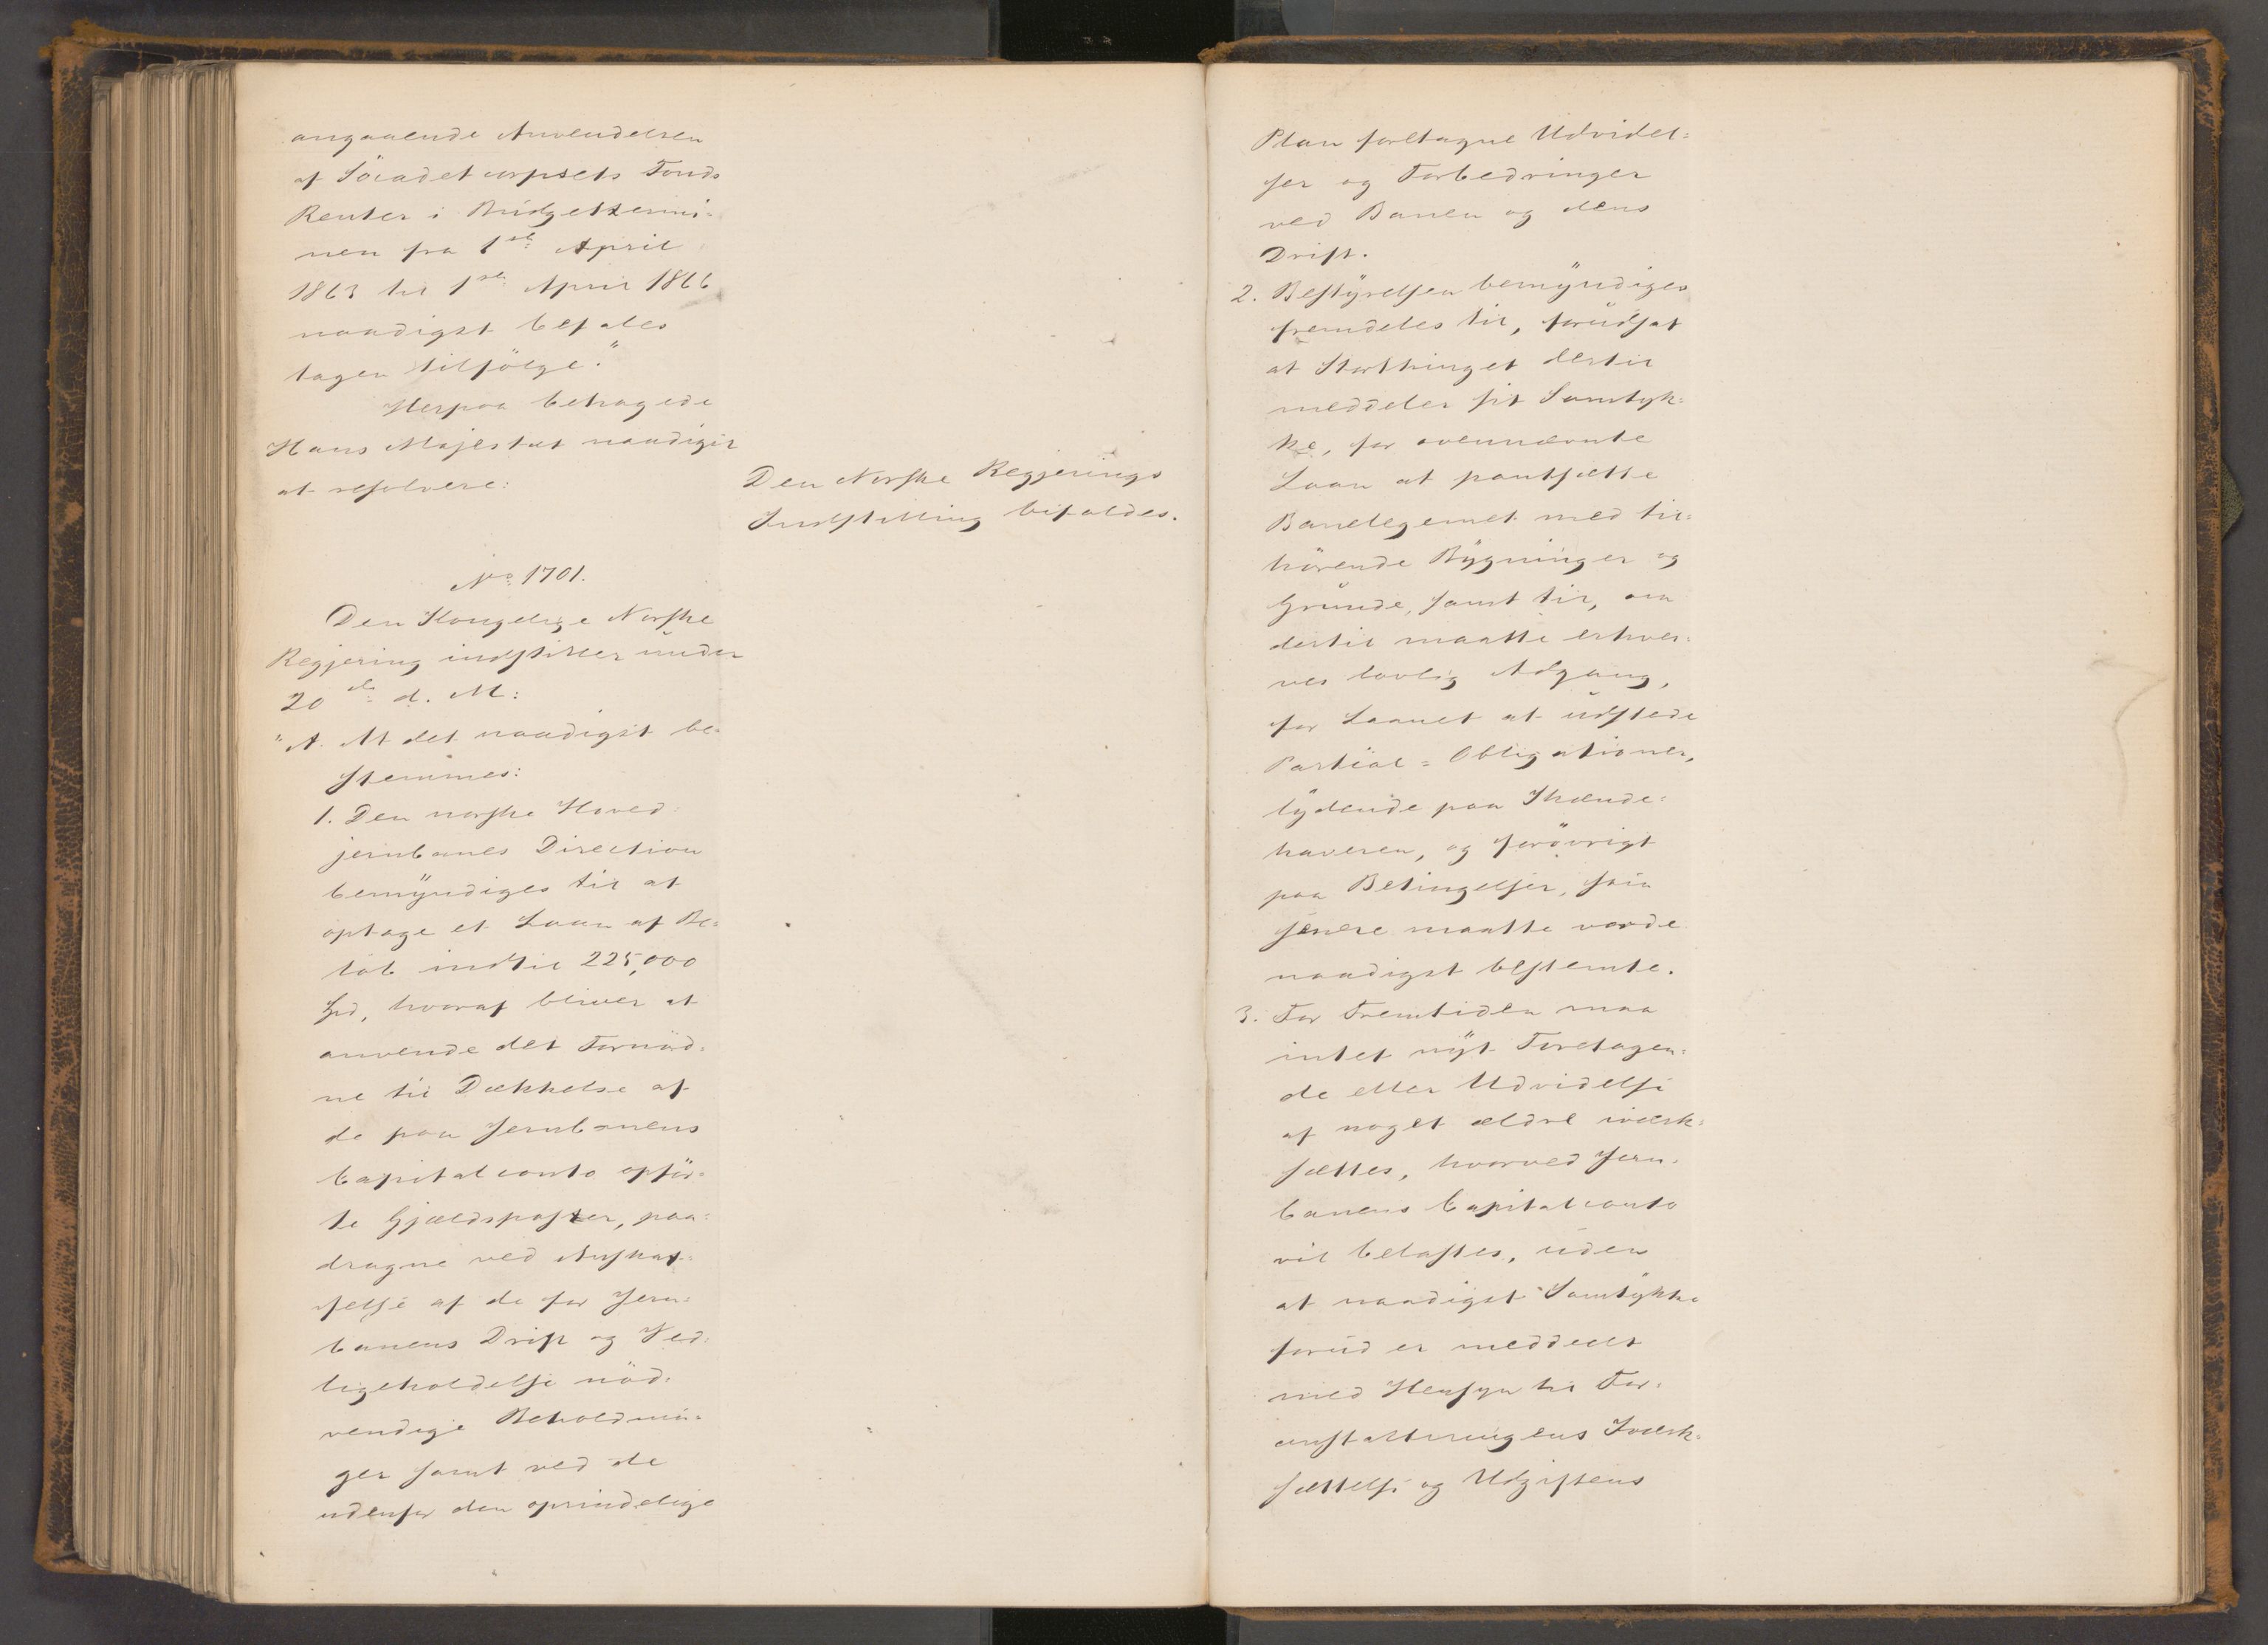 angaaende Anvendelsen
af Söcadetcorpsets Fonds
Renter i Büdgettermi-
nen fra 1ste April
1863 til 1ste April 1866
naadigst befales
tagen tilfölge."
Herpaa behagede
Hans Majestæt naadigst
at resolvere:
Den Norske Regjerings
Indstilling bifaldes.
No 1701.
Den Kongelige Norske
Regjering indstiller ünder
20de d. M:
"A. At det naadigst be-
stemmes:
1. Den norske Hoved-
jernbanes Direction
bemÿndiges til at
optage et Laan af Be-
löb indtil 225,000
Spd, hvoraf bliver at
anvende det Fornöd-
ne til Dækkelse af
de paa Jernbanens
Capitalconto opför-
te Gjældsposter, paa-
dragne ved Anskaf-
felse af de for Jern-
banens Drift og Ved-
ligeholdelse nöd-
vendige Beholdnin-
ger samt ved de
udenfor den oprindelige
Plan foretagne Udvidel-
ser og Forbedringer
ved Banen og dens
Drift.
2. Bestÿrelsen bemÿndiges
fremdeles til, forüdsat
at Storthinget dertil
meddeler sit Samtyk-
ke, for ovennævnte
Laan at pantsætte
Banelegemet med til-
hörende Bÿgninger og
Gründe, samt til, om
dertil maatte erhver-
ves lovlig Adgang,
for Laanet at üdstede
Partial-Obligationer,
lÿdende paa Ihænde-
haveren, og forövrigt
paa Betingelser, som
senere maatte vorde
naadigst bestemte.
3. For Fremtiden maa
intet nÿt Foretagen-
de eller Udvidelse
af noget ældre iværk-
sættes, hvorved Jern-
banens Capitalconto
vil belastes, üden
at naadigst Samtÿkke
forüd er meddeelt
med Hensyn til For-
anstaltningens Iværk-
sættelse og Udgiftens